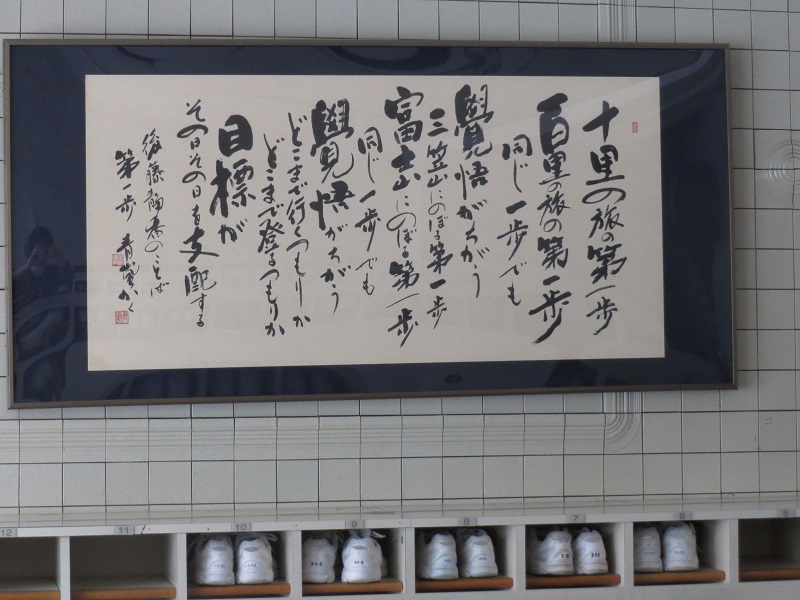 十里の旅の第一歩
百里の旅の第一歩
同じ一歩でも
覺悟がちがう
三笠山にのぼる第一歩
富士山にのぼる第一歩
同じ一歩でも
覺悟がちがう
どこまで行くつもりか
どこまで登るつもりか
目標が
その日その日を支配する
後藤静香のことば
第一歩 青嵐かく
12
11
10
9
8
7
6
5